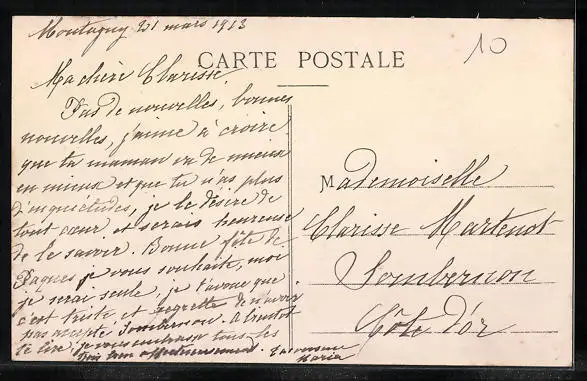 Montagny 21 mars 1913
10
CARTE POSTALE
Ma chère Clarisse,
Pas de nouvelles, bonnes
nouvelles, j'aime à croire
que ta maman va de mieux
en mieux et que tu n'as plus
d'inquiétudes, je le désire de
tout cœur et serais heureuse
de le savoir. Bonne fête de
Pâques je vous souhaite, moi
je serai seule, je t'avoue que
c'est triste et regrette de n'avoir
pas accepté Sombernon. A bientôt
te lire, je vous embrasse tous les
trois bien affectueusement.
Maria
Mademoiselle
Clarisse Martenot
Sombernon
Côte d'or